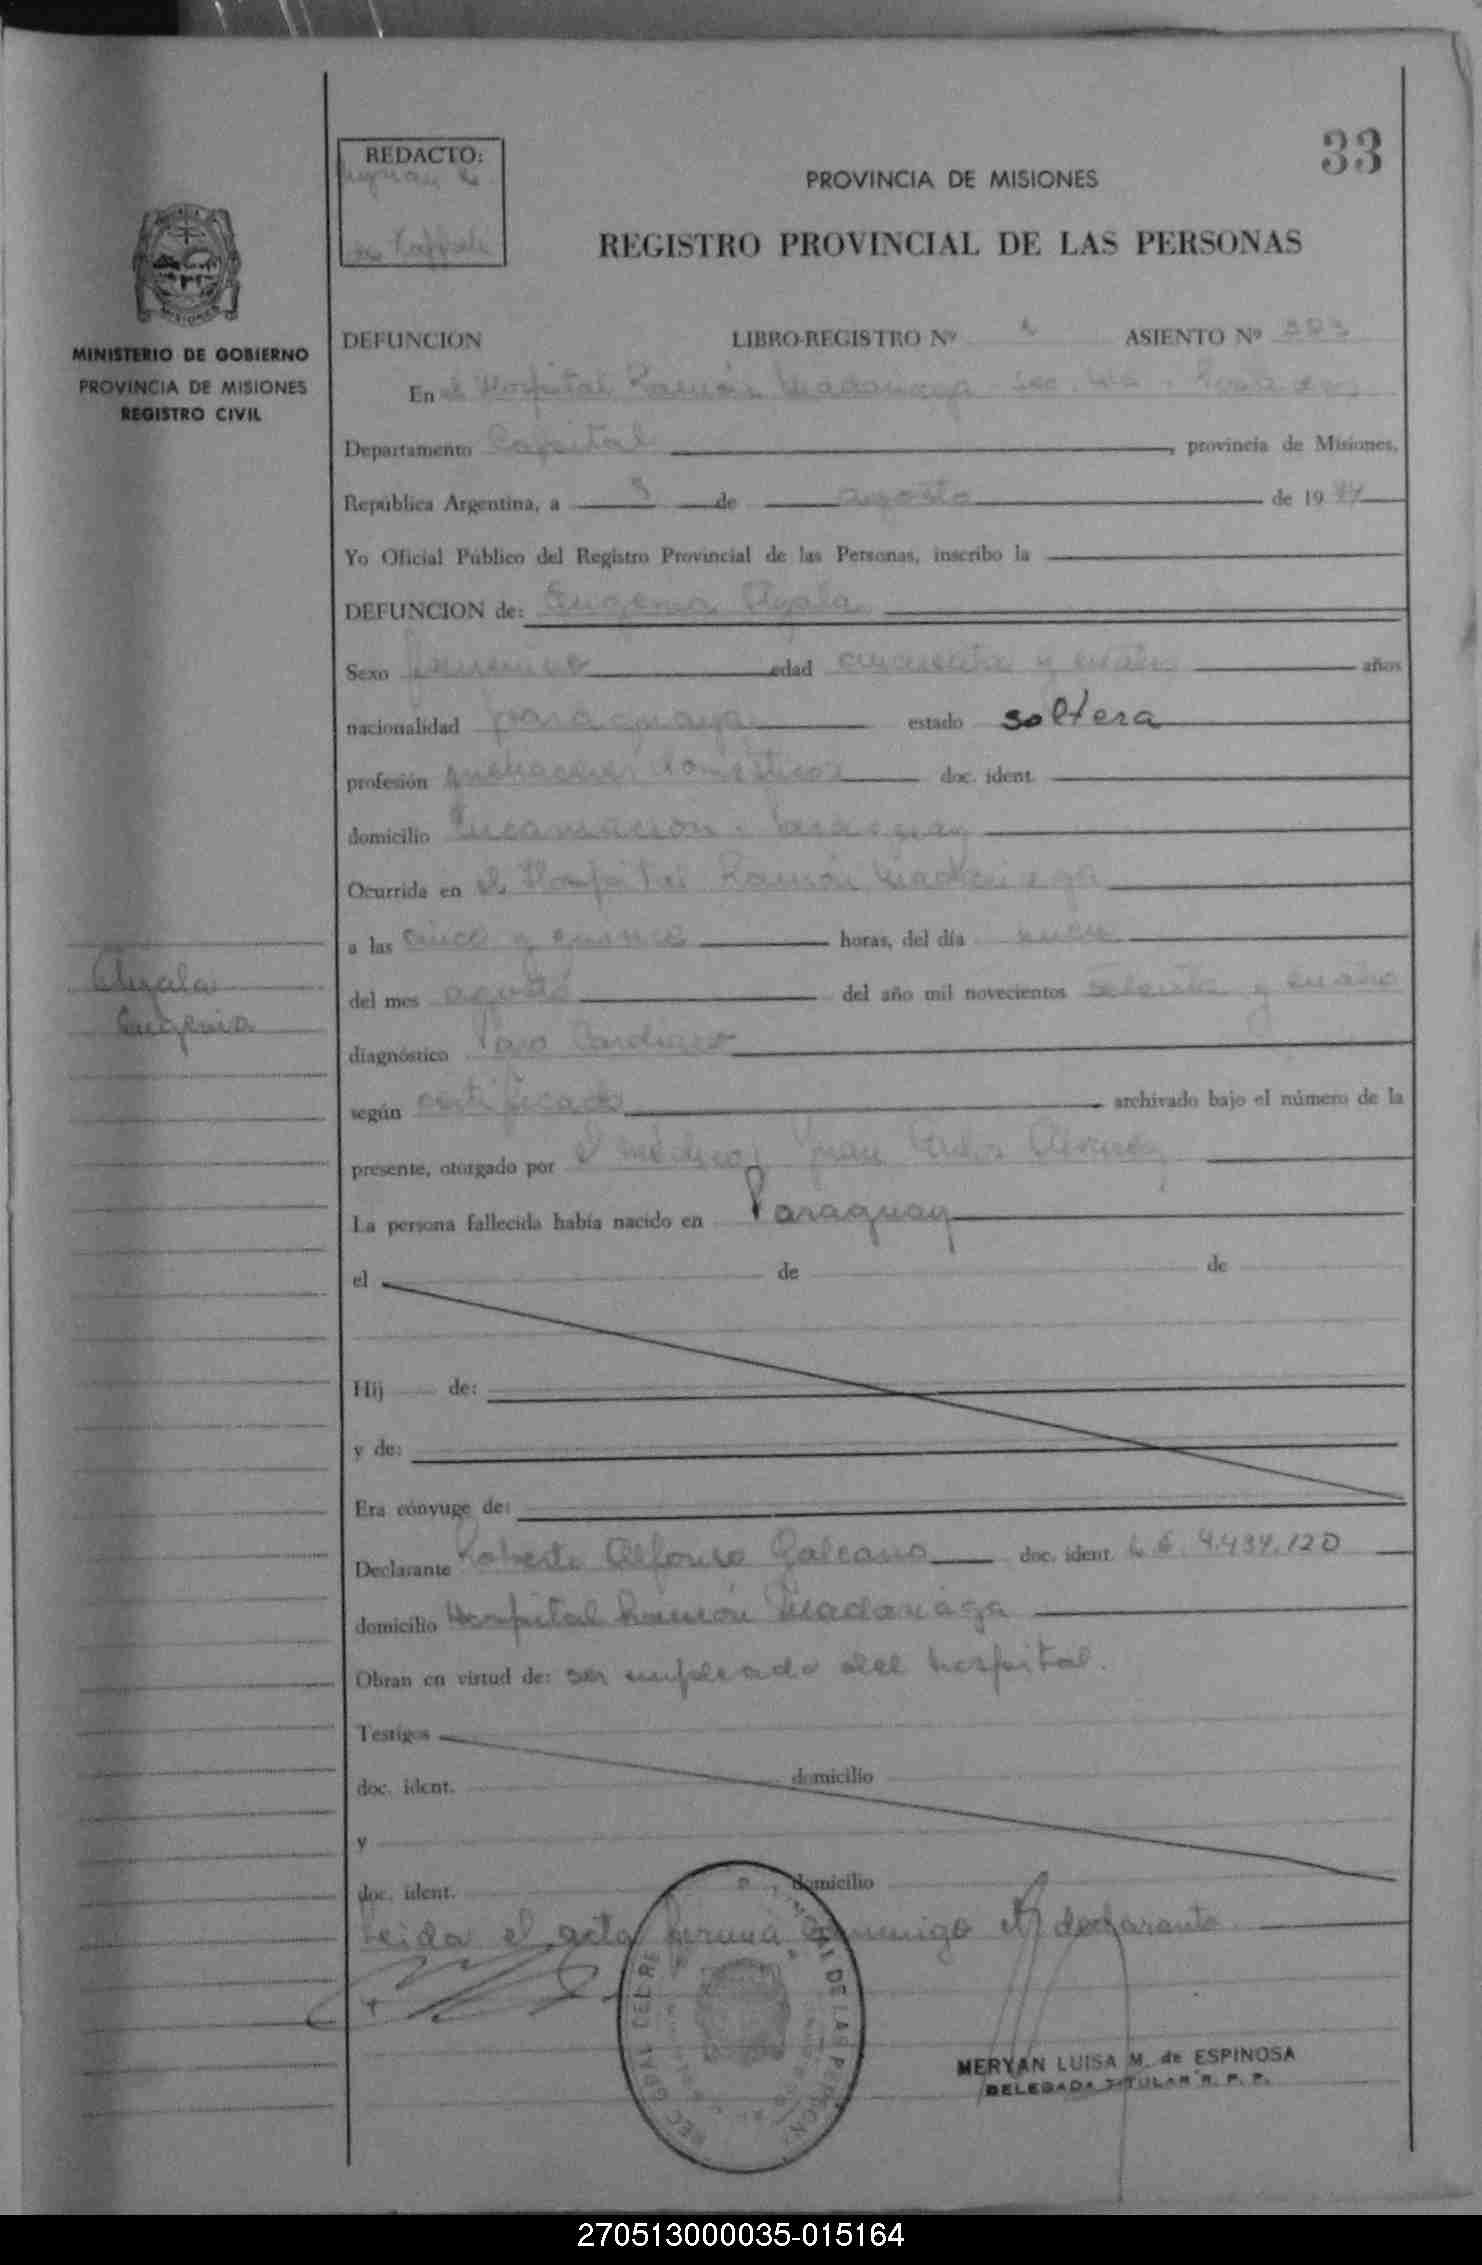 33
REDACTO:
PROVINCIA DE MISIONES
REGISTRO PROVINCIAL DE LAS PERSONAS
MINISTERIO DE GOBIERNO
PROVINCIA DE MISIONES
REGISTRO CIVIL
DEFUNCION LIBRO-REGISTRO Nº 1 ASIENTO Nº
En el Hospital Ramón Madariaga
Departamento Capital, provincia de Misiones,
República Argentina, a de agosto de 1974
Yo Oficial Público del Registro Provincial de las Personas, inscribo la
DEFUNCION de: Eugenia Ayala
Sexo femenino edad años
nacionalidad paraguaya estado soltera
profesión quehaceres domésticos doc. ident.
domicilio Encarnación - Paraguay
Ocurrida en el Hospital Ramón Madariaga
a las cinco y quince horas, del día
Ayala
Eugenia
del mes agosto del año mil novecientos setenta y cuatro
diagnóstico Paro Cardíaco
según certificado archivado bajo el número de la
presente, otorgado por el médico Juan Carlos
La persona fallecida había nacido en Paraguay
el de de
Hij de:
y de:
Era cónyuge de:
Declarante Roberto Alfonso Galeano doc. ident. L.E. 4.434.120
domicilio Hospital Ramón Madariaga
Obran en virtud de: ser empleado del hospital.
Testigos
doc. ident. domicilio
y
doc. ident. domicilio
Leida el acta firma conmigo el declarante
MERYAN LUISA M. de ESPINOSA
DELEGADA TITULAR R. P. P.
270513000035-015164